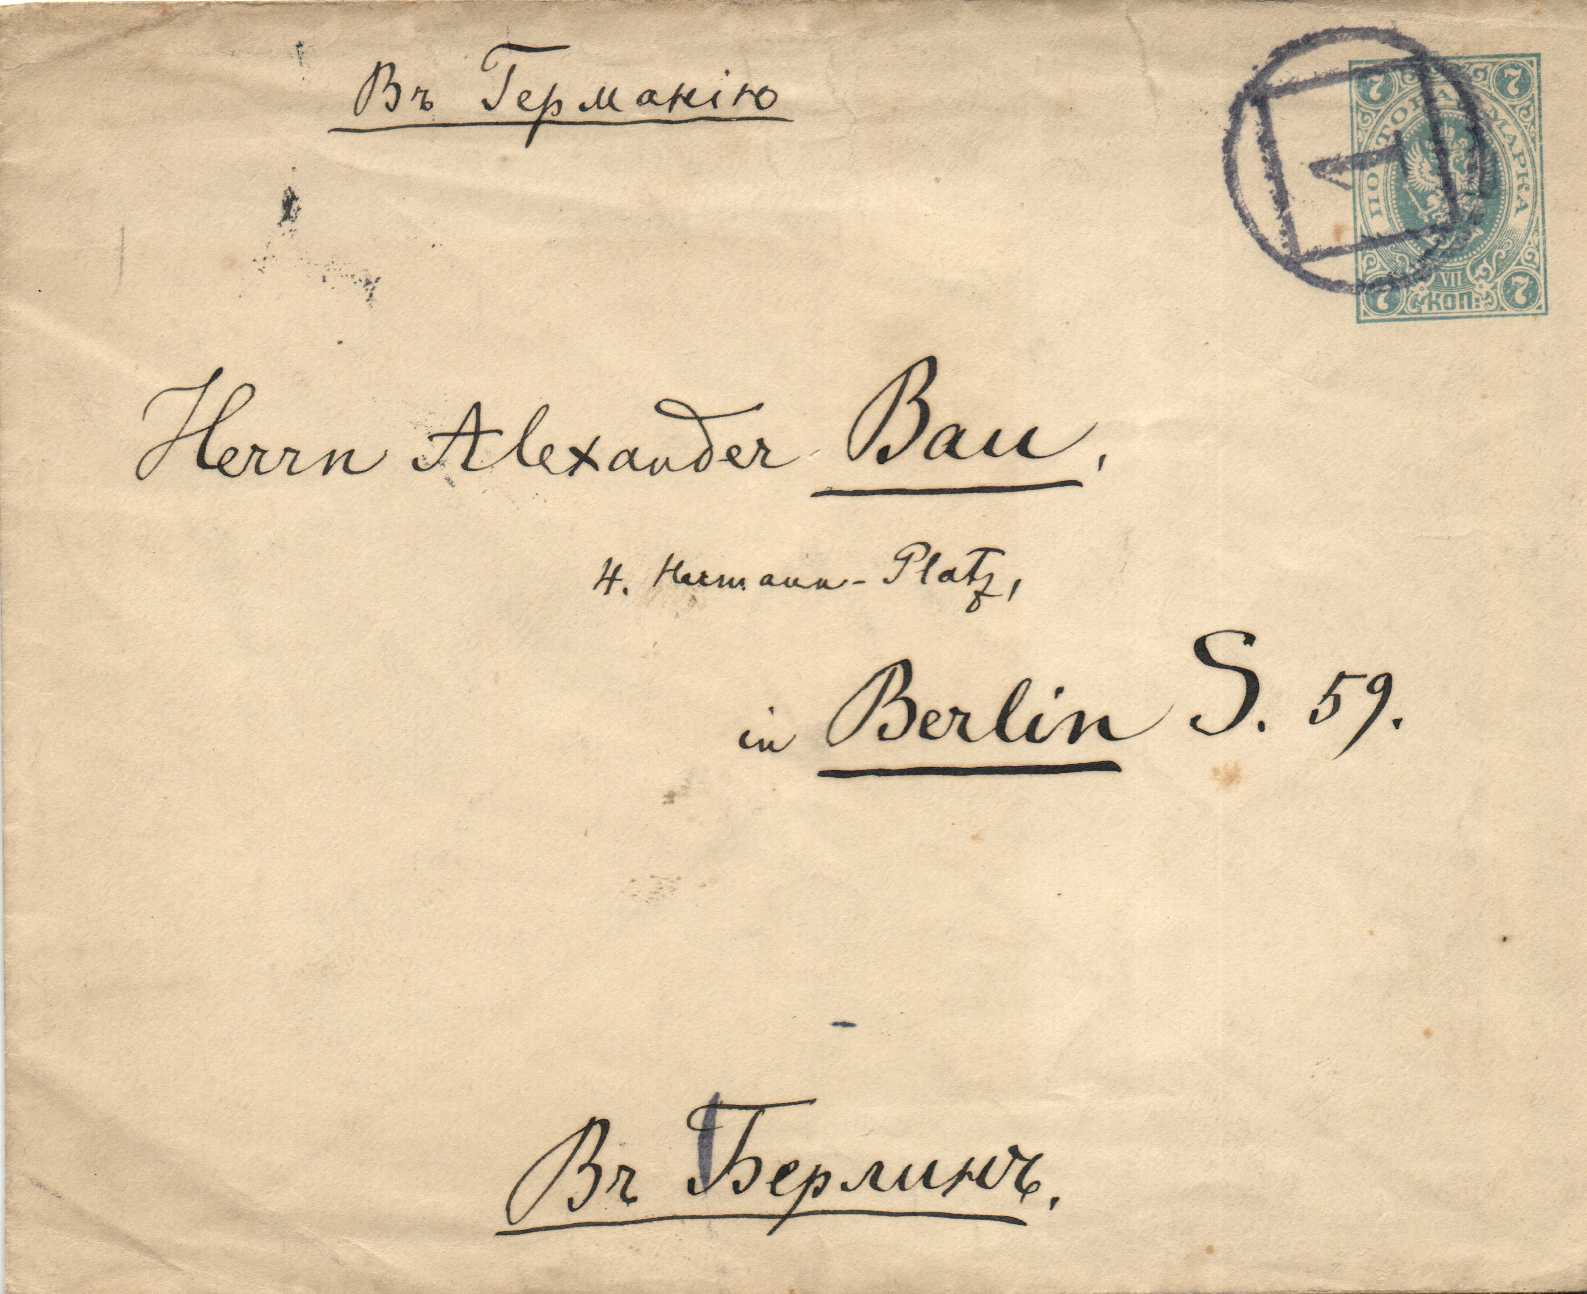 Въ Германію
7 7
ПОЧТОВАЯ МАРКА
1
VII
7 КОП. 7
Herrn Alexander Bau,
4. Hermann-Platz,
in Berlin S. 59.
Въ Берлинъ.